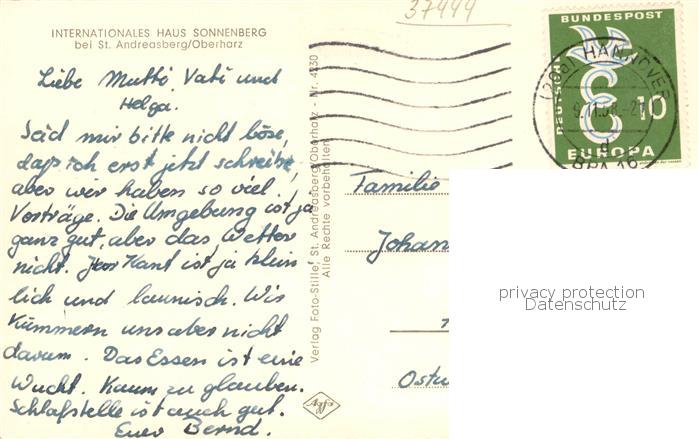 37444
INTERNATIONALES HAUS SONNENBERG
bei St. Andreasberg/Oberharz
Liebe Mutti, Vati und
Helga.
Seid mir bitte nicht böse,
daß ich erst jetzt schreibe,
aber wir haben so viel
Vorträge. Die Umgebung ist ja
ganz gut, aber das Wetter
nicht. Herr Kant ist ja klein
lich und launisch. Wir
kümmern uns aber nicht
darum. Das Essen ist eine
Wucht. Kaum zu glauben.
Schlafstelle ist auch gut.
Euer Bernd.
Verlag Foto-Stille, St. Andreasberg/Oberharz - Nr. 4230
Alle Rechte vorbehalten
Agfa
DEUTSCHE
BUNDESPOST
10
EUROPA
(20a) HANNOVER
9.11.58.-21
d
BPA 16
Familie
Johan
Ostw
privacy protection
Datenschutz